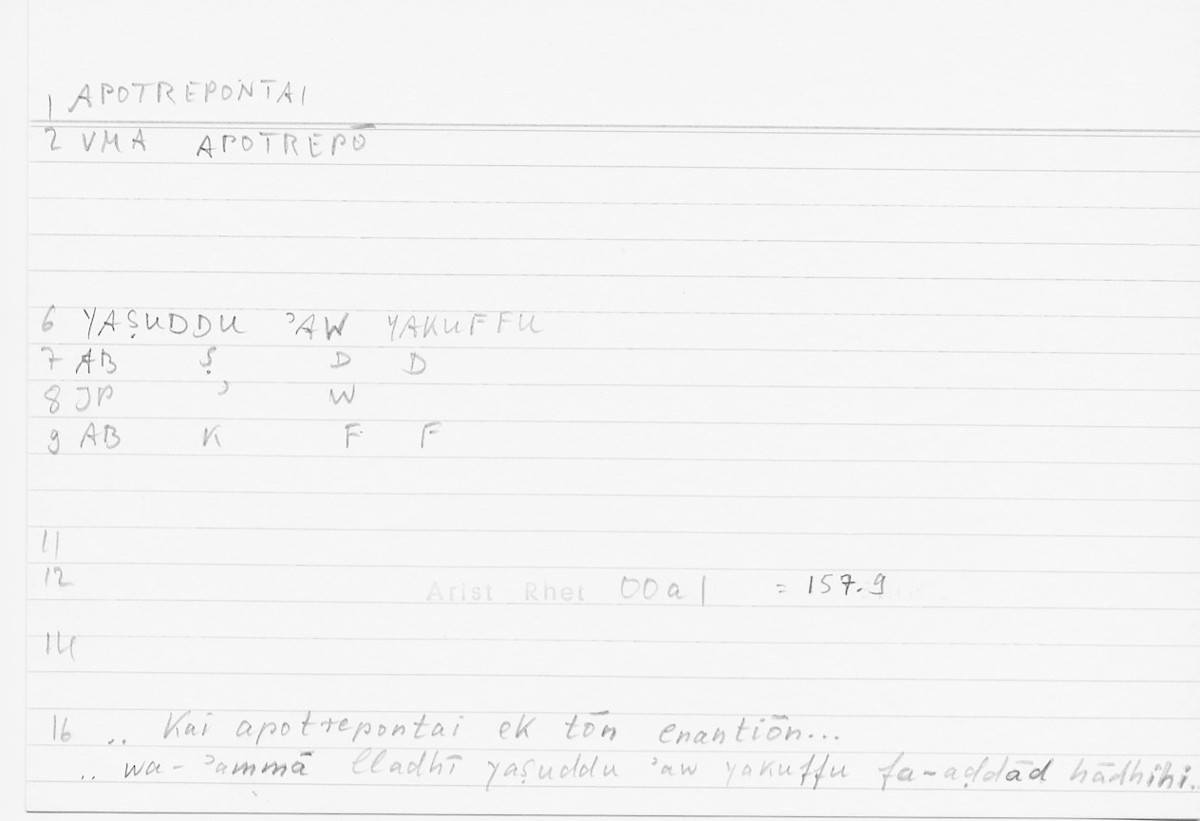 1 APOTREPONTAI
2 VMA APOTREPŌ
6 YAṢUDDU ʾAW YAKUFFU
7 AB Ṣ D D
8 JP ʾ W
9 AB K F F
11
12 Arist Rhet 00a1 = 157.9
14
16 .. Kai apotrepontai ek tōn enantiōn...
.. wa-ʾammā lladhī yaṣuddu ʾaw yakuffu fa-aḍdād hādhihi..